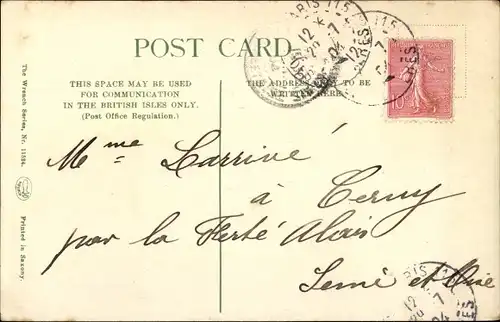 POST CARD
THIS SPACE MAY BE USED
FOR COMMUNICATION
IN THE BRITISH ISLES ONLY.
(Post Office Regulation.)
THE ADDRESS ONLY TO BE
WRITTEN HERE.
The Wrench Series, Nr. 11524.
Printed in Saxony.
PARIS 115
12
29 7
04
115
7
10
Mme Larrivé
à Cerny
par la Ferté Alais
Seine et Oise
PARIS 11
12
29 7
04